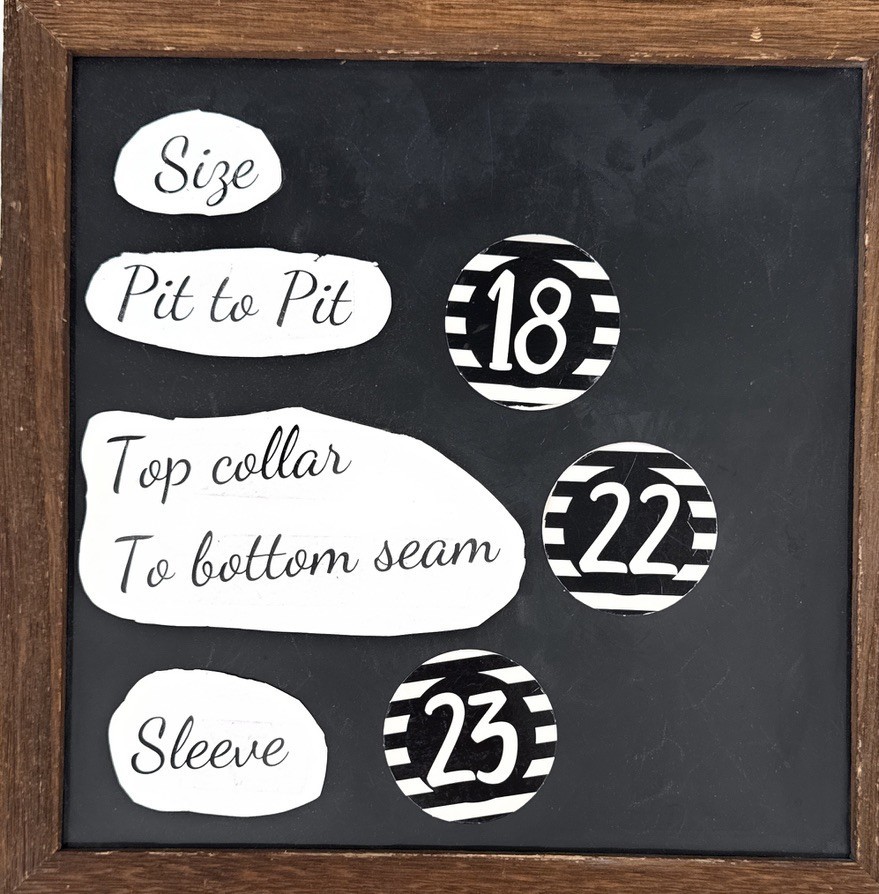 Size
Pit to Pit 18
Top collar
To bottom seam 22
Sleeve 23